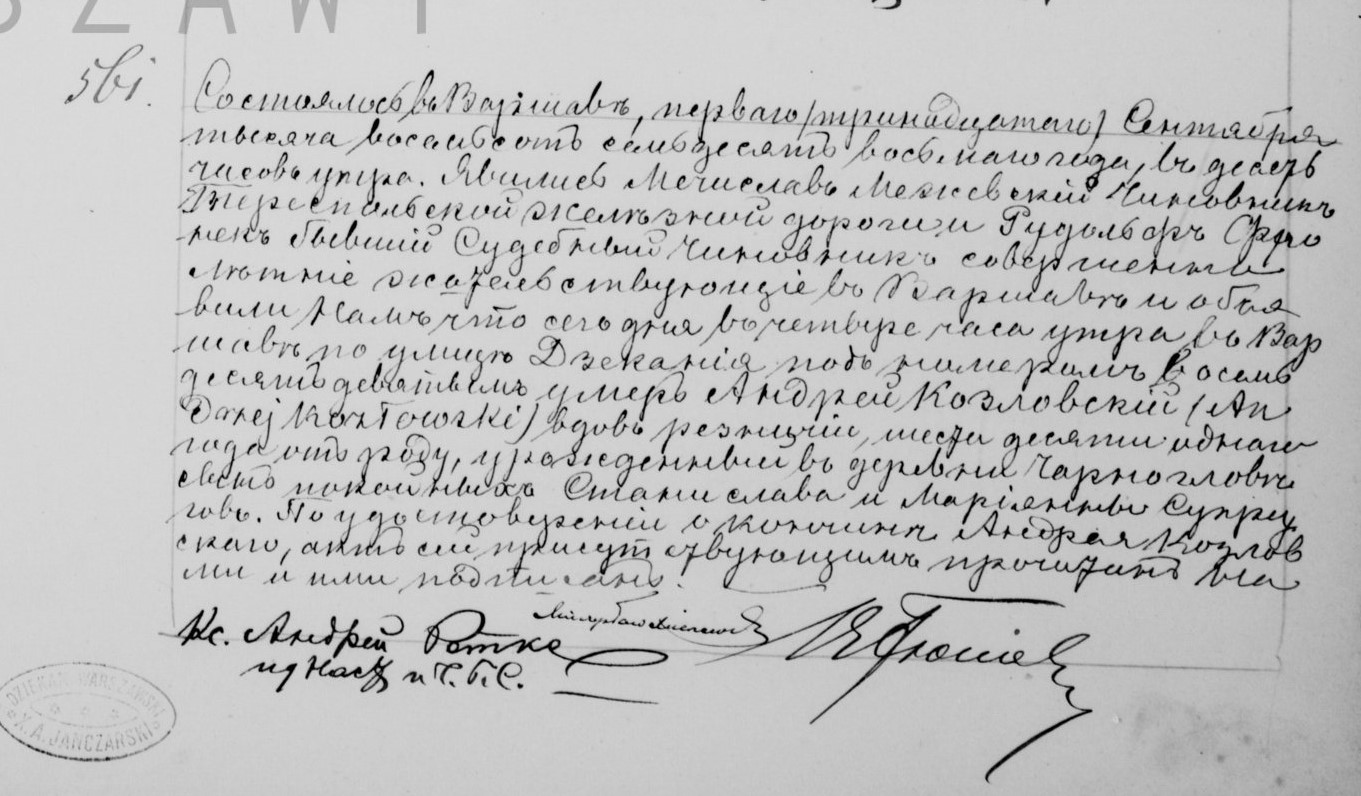 SZAWY
561.
Состоялось въ Варшавѣ, перваго (тринадцатаго) Сентября
тысяча восемьсотъ семьдесятъ восьмаго года, въ десять
часовъ утра. Явились Мечиславъ Межевскій Чиновникъ
Тереспольской желѣзной дороги и Рудольфъ
бывшій Судебный Чиновникъ совершенно
лѣтніе жательствующіе въ Варшавѣ и объя
вили Намъ что сего дня въ четыре часа утра въ Вар
шавѣ по улицѣ Дзеканія подъ номеромъ восемь
десятъ девятымъ умеръ Андрей Козловскій (An
drzej Kozłowski) вдовъ шести десяти одного
года отъ роду, урожденный въ деревни Чарногловъ
покойныхъ Станислава и Маріянны Супру
говъ. По удостовѣреніи о кончинѣ Андрея Козлов
скаго, актъ сей присутствующимъ прочитанъ На
ми и ими подписанъ.
Кс. Андрей Ретке
и Ч. Г. С.
DZIEKAN WARSZAWSKI
X. A. JANCZARSKI